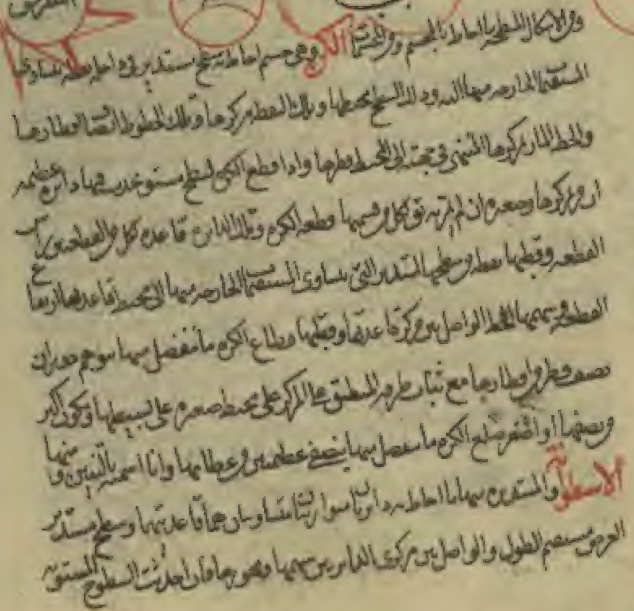 وفي الاشكال المسطحة بالمحاط بالمجسم وفي المجسمات الكرة وهي جسم احاط به سطح مستدير في داخله نقطة تتساوى
المستقيمات الخارجة منها اليه وذلك السطح محيطها وتلك النقطة مركزها وتلك الخطوط انصاف اقطارها
والخط المار بمركزها المنتهي في جهتيه الى المحيط قطرها واذا قطع الكرة سطح مستو حدث فيها دائرة عظيمة
ان مر بمركزها وصغيرة ان لم يمر به وكل من قسميها قطعة الكرة وتلك الدائرة قاعدة كل من القطعتين
القطعة وقطبها نقطة من سطحها المستدير التي تتساوى المستقيمات الخارجة منها الى محيط قاعدتها
القطعة وسهمها الخط الواصل بين مركز قاعدتها وقطبها وقطاع الكرة ما ينفصل منها
نصف قطر من اقطارها مع ثبات طرفه المنطبق على المركز على محيط صغيرة على بسيطها ويكون اكبر
من نصفها او اصغر وضلع الكرة ما ينفصل منها بنصفي عظيمتين من عظامها وانا اسميه
الاسطوانة والمستديرة منها ما احاط به دائرتان متوازيتان متساويتان هما قاعدتيها وسطح مستدير
العرض مستقيم الطول والواصل بين مركزي الدائرتين سهمها ومحورها فان احدثت السطوح المستوية